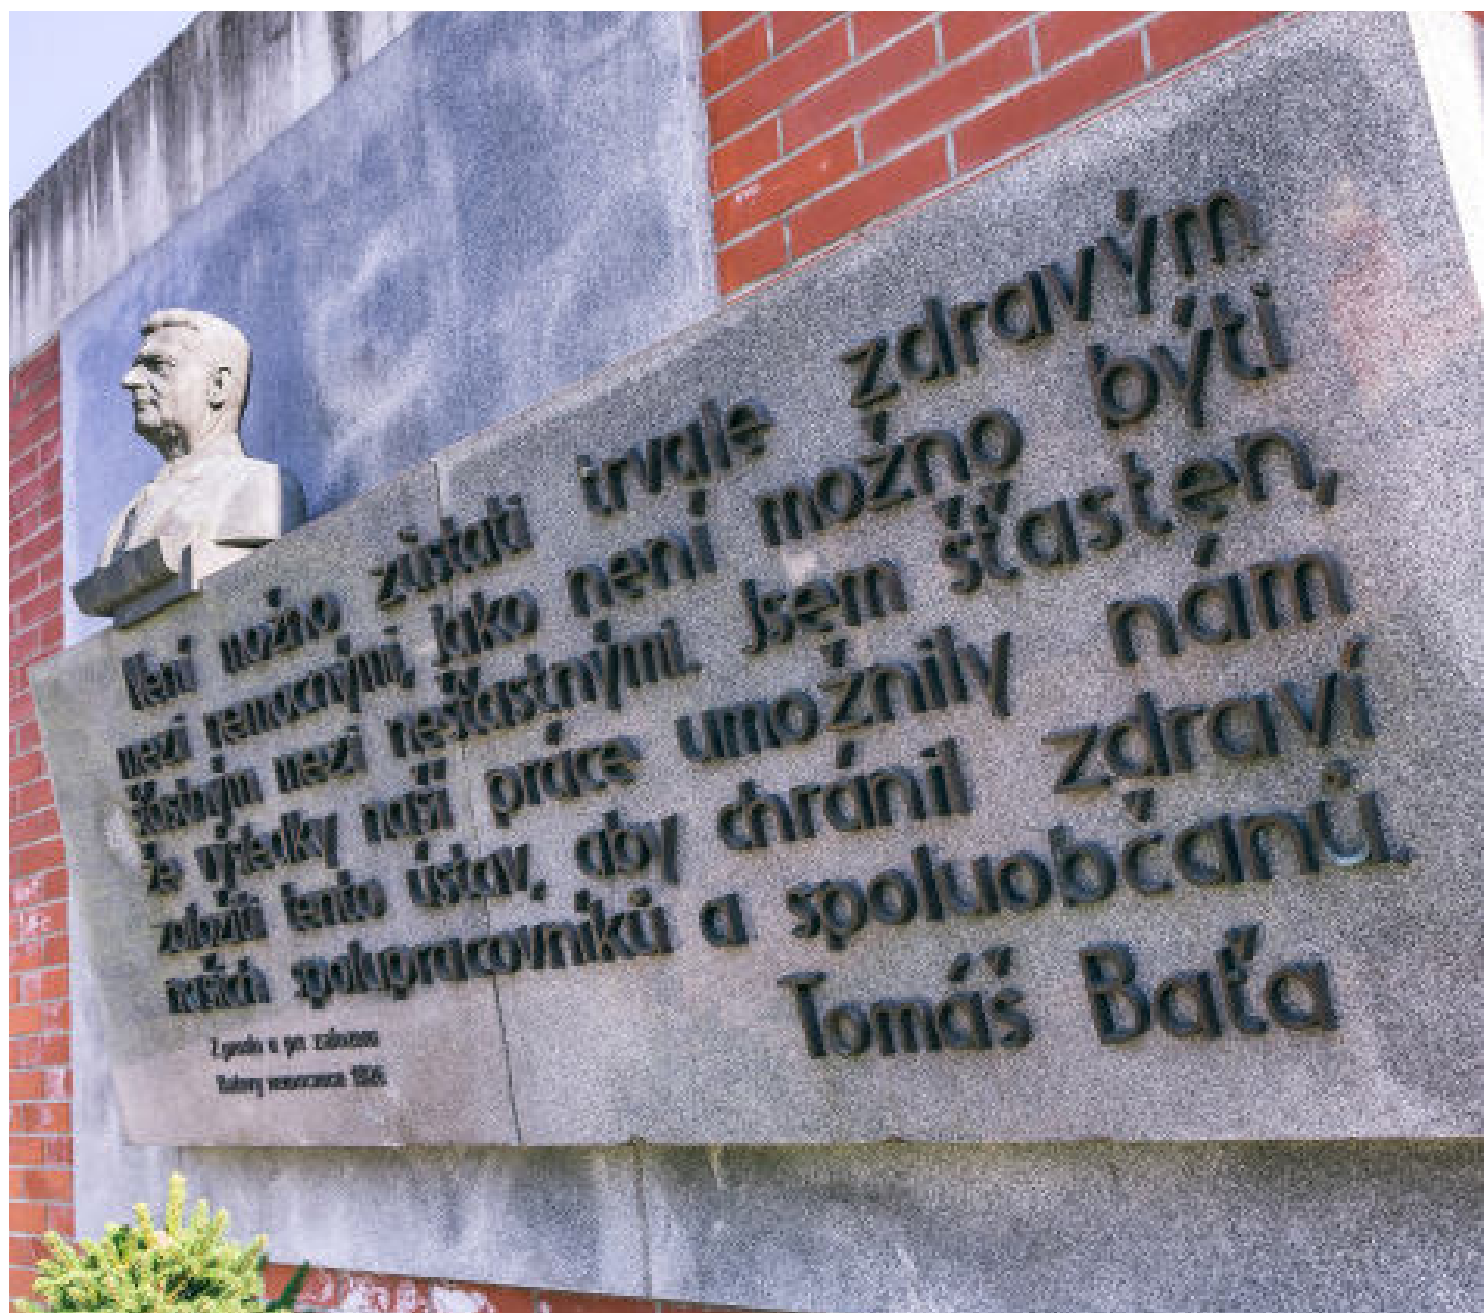 Není možno zůstati trvale zdravým
mezi nemocnými, jako není možno býti
šťastným mezi nešťastnými. Jsem šťasten,
že výsledky naší práce umožnily nám
založiti tento ústav, aby chránil zdraví
našich spolupracovníků a spoluobčanů.
Tomáš Baťa
Z projevu při založení
Baťovy nemocnice